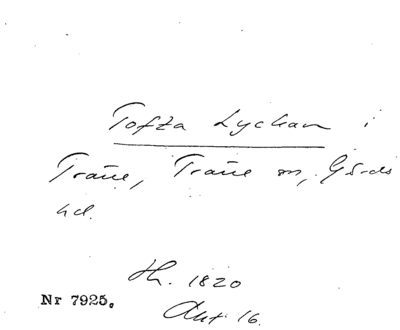 Tofta Lyckan i
Träne, Träne sn, Gärds
hd.
Lh. 1820
Nr 7925.
Akt 16.